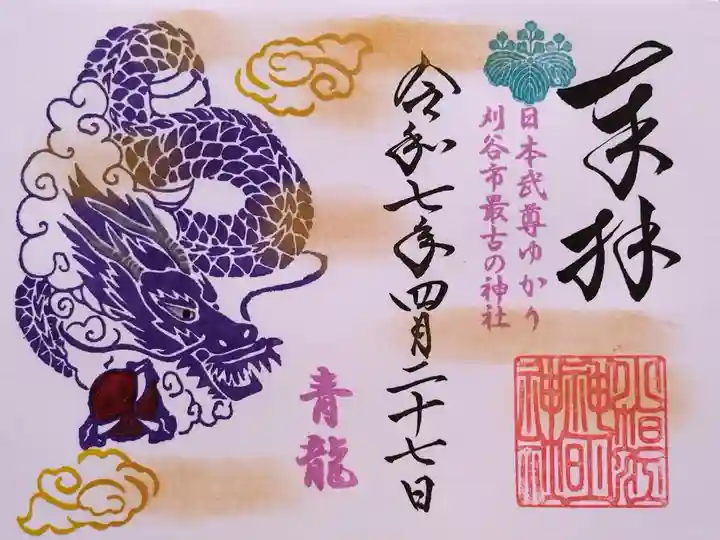 奉拝
日本武尊ゆかり
刈谷市最古の神社
令和七年四月二十七日
青龍
小垣江
神明
神社